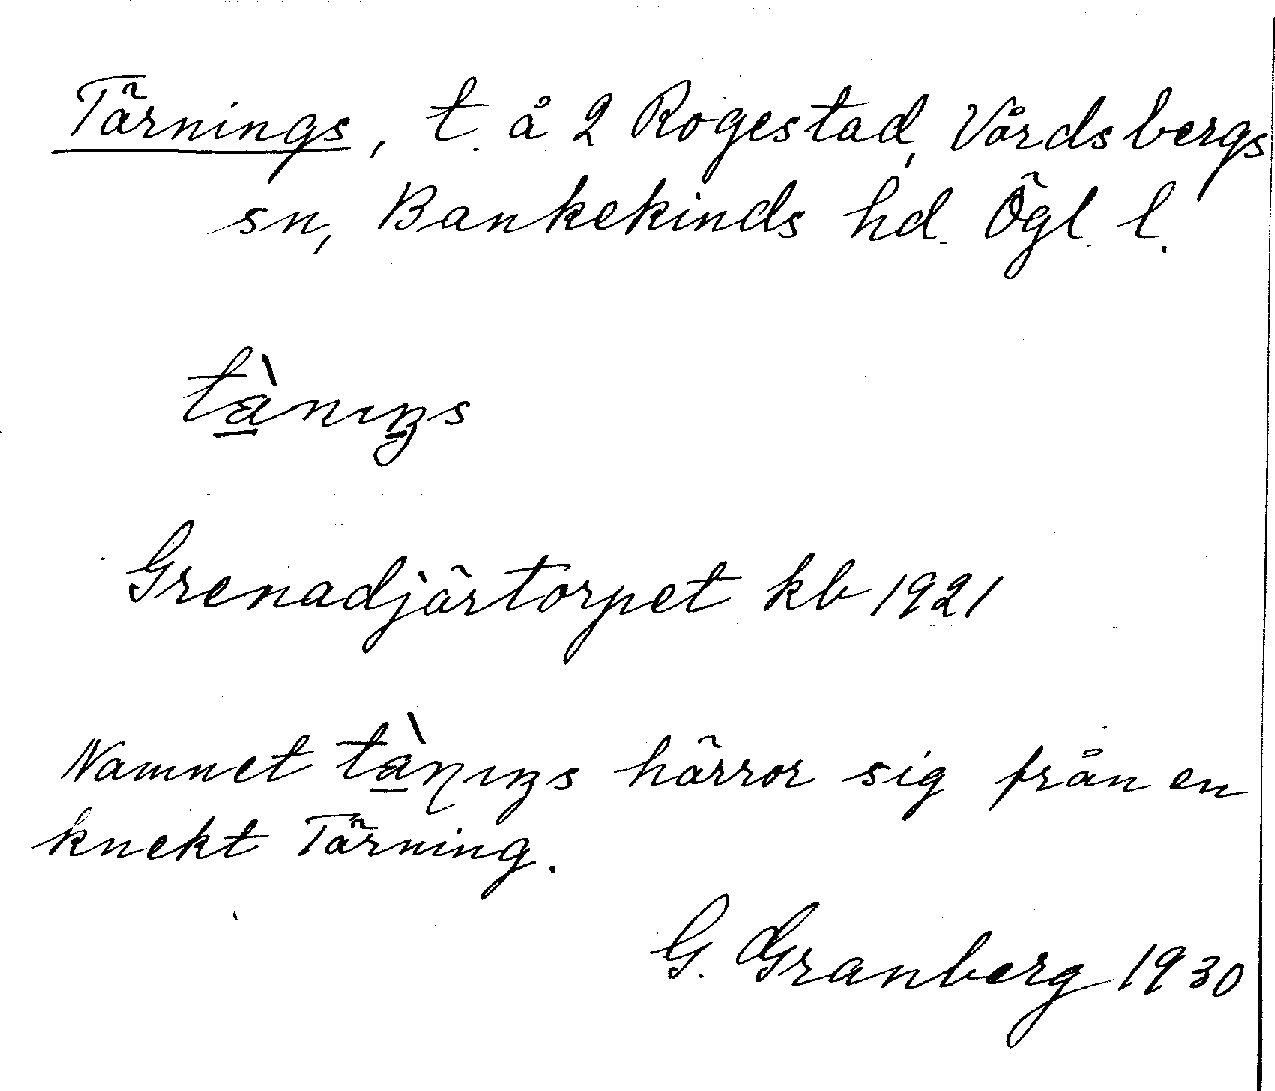 Tärnings, t. å 2 Rogestad, Vårdsbergs
sn, Bankekinds hd. Ögl. l.
tànıŋs
Grenadjärtorpet kb 1921
Namnet tàɳıŋs härror sig från en
knekt Tärning.
G. Granberg 1930